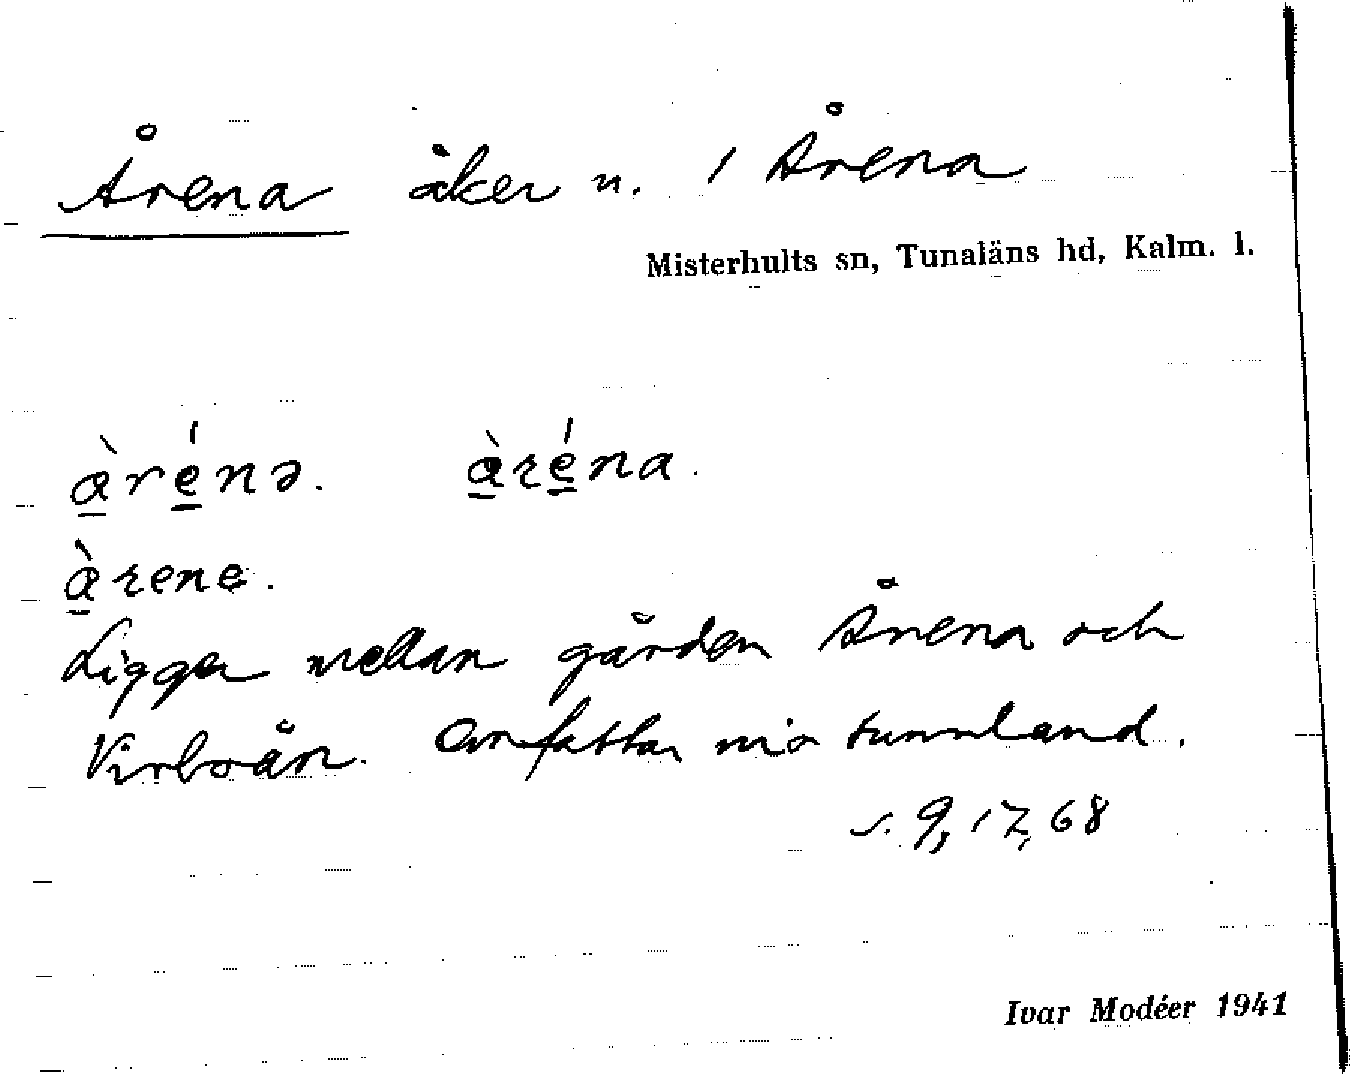 Årena åker u. 1 Årena
Misterhults sn, Tunaläns hd, Kalm. l.
àrénə. àréna.
àrene.
Ligger mellan gården Årena och
Virboån. Omfattar nio tunnland.
s. 9, 17, 68
Ivar Modéer 1941